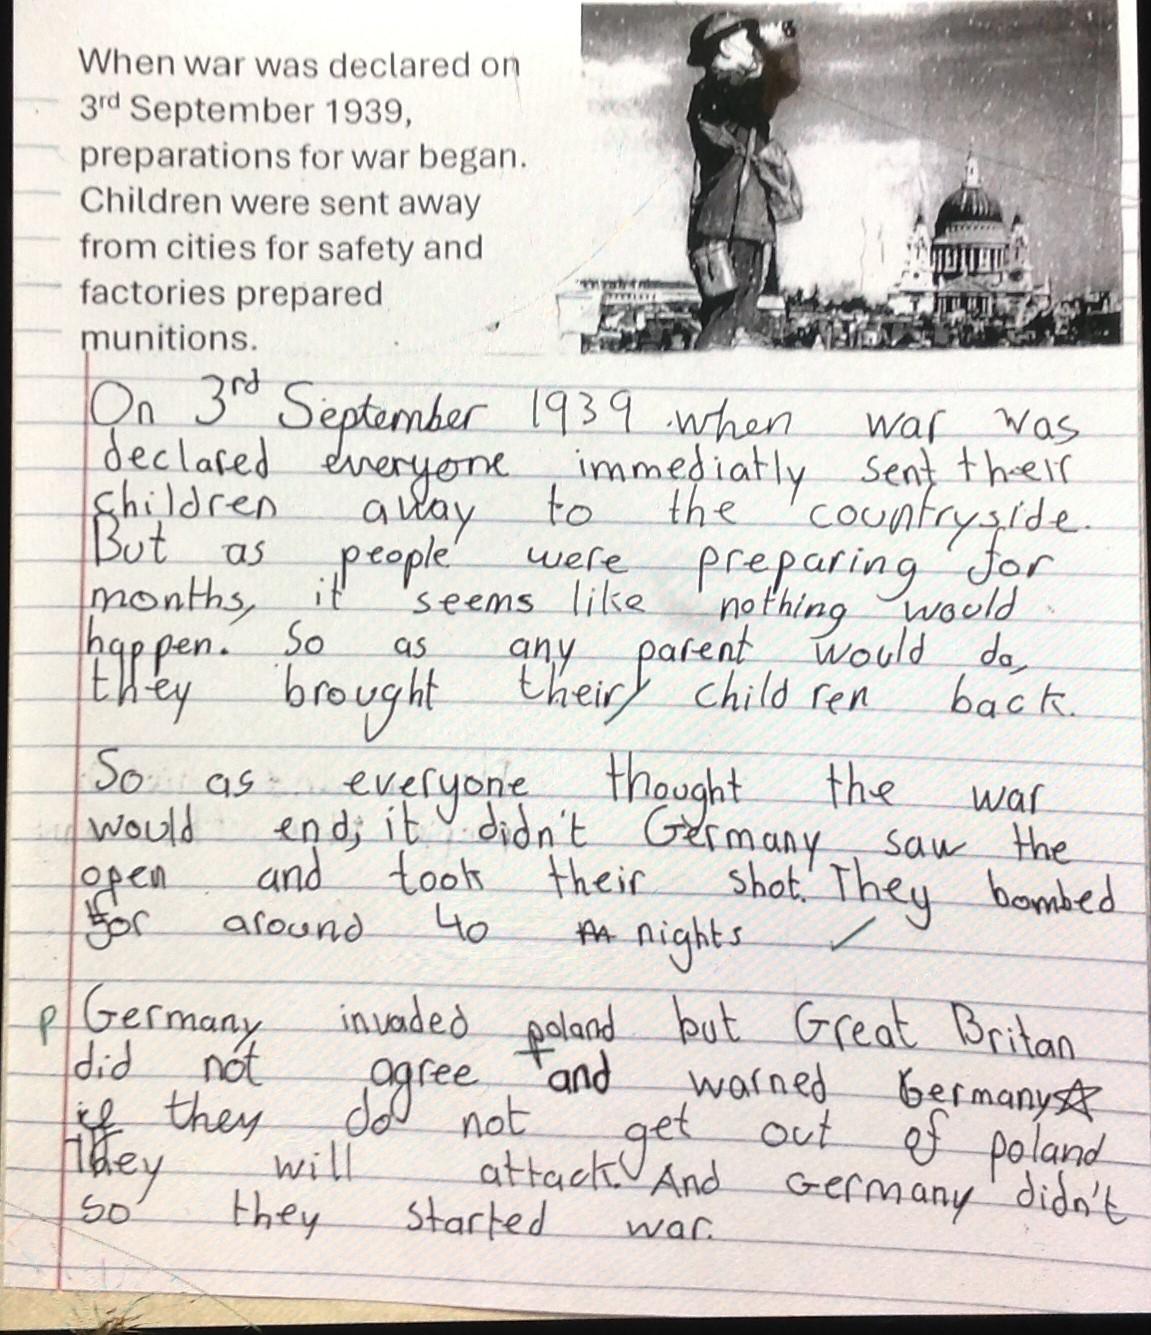 When war was declared on
3rd September 1939,
preparations for war began.
Children were sent away
from cities for safety and
factories prepared
munitions.
On 3rd September 1939 when war was
declared everyone immediatly sent their
children away to the countryside.
But as people were preparing for
months, it seems like nothing would
happen. So as any parent would do,
they brought their children back.
So as everyone thought the war
would end; it didn't Germany saw the
open and took their shot. They bombed
for around 40 nights
p Germany invaded poland but Great Britan
did not agree and warned Germany
if they do not get out of poland
They will attack. And Germany didn't
so they started war.